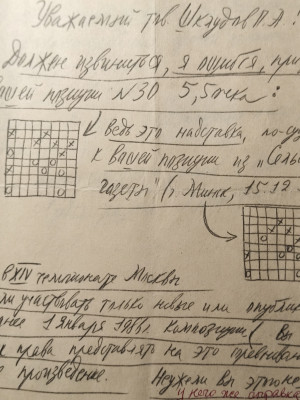 Уважаемый тов Шклудов П.А.!
Должен извиниться, я ошибся, при
Вашей позиции №30 5,5 очка:
Ведь это надставка, по-су
к Вашей позиции из "Сель
газеты" (г Минск, 15.12
В XIV чемпионате Москвы
ли участвовать только новые или опублик
анее 1 января 1966г. композиции! Вы
е права представлять на это соревнова
е произведение. Неужели Вы этого не